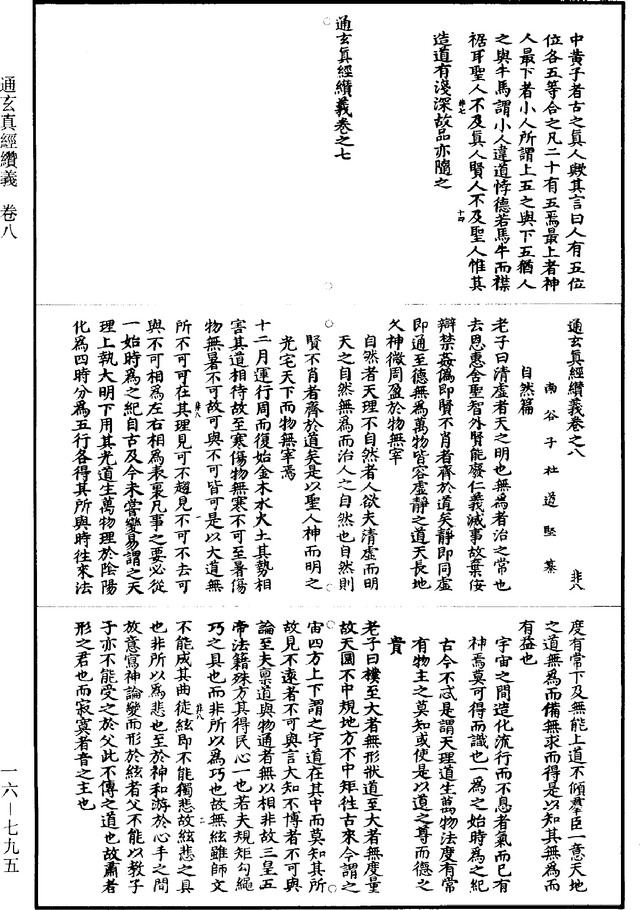 中黃子者古之真人歟其言曰人有五位
位各五等合之凡二十有五焉最上者神
人最下者小人所謂上五之與下五猶人
之與牛馬謂小人違道悖德若馬牛而襟
裾耳聖人不及真人賢人不及聖人惟其
造道有淺深故品亦隨之
通玄真經纘義卷之七
通玄真經纘義卷之八
南谷子杜道堅纂
自然篇
老子曰清虛者天之明也無為者治之常也
去恩惠舍聖智外賢能廢仁義滅事故棄佞
辯禁姦偽即賢不肖者齊於道矣靜即同虛
即通至德無為萬物皆容虛靜之道天長地
久神微周盈於物無宰
自然者天理不自然者人欲夫清虛而明
天之自然無為而治人之自然也自然則
賢不肖者齊於道矣是以聖人神而明之
光宅天下而物無宰焉
十二月運行周而復始金木水火土其勢相
害其道相待故至寒傷物無寒不可至暑傷
物無暑不可故可與不可皆可是以大道無
所不可可在其理見可不趨見不可不去可
與不可相為左右相為表裏凡事之要必從
一始時為之紀自古及今未嘗變易謂之天
理上執大明下用其光道生萬物理於陰陽
化為四時分為五行各得其所與時往來法
度有常下及無能上道不傾羣臣一意天地
之道無為而備無求而得是以知其無為而
有益也
宇宙之間造化流行而不息者氣而已有
神焉莫可得而識也一為之始時為之紀
古今不忒是謂天理道生萬物法度有常
有物主之莫知或使是以道之尊而德之
貴
老子曰樸至大者無形狀道至大者無度量
故天圓不中規地方不中矩往古來今謂之
宙四方上下謂之宇道在其中而莫知其所
故見不遠者不可與言大知不博者不可與
論至夫稟道與物通者無以相非故三皇五
帝法籍殊方其得民心一也若夫規矩勾繩
巧之具也而非所以為巧也故無絃雖師文
不能成其曲徒絃即不能獨悲故絃悲之具
也非所以為悲也至於神和游於心手之間
放意寫神論變而形於絃者父不能以教子
子亦不能受之於父此不傳之道也故肅者
形之君也而寂寞者音之主也
通玄真經纘義 卷八
一六—七九五